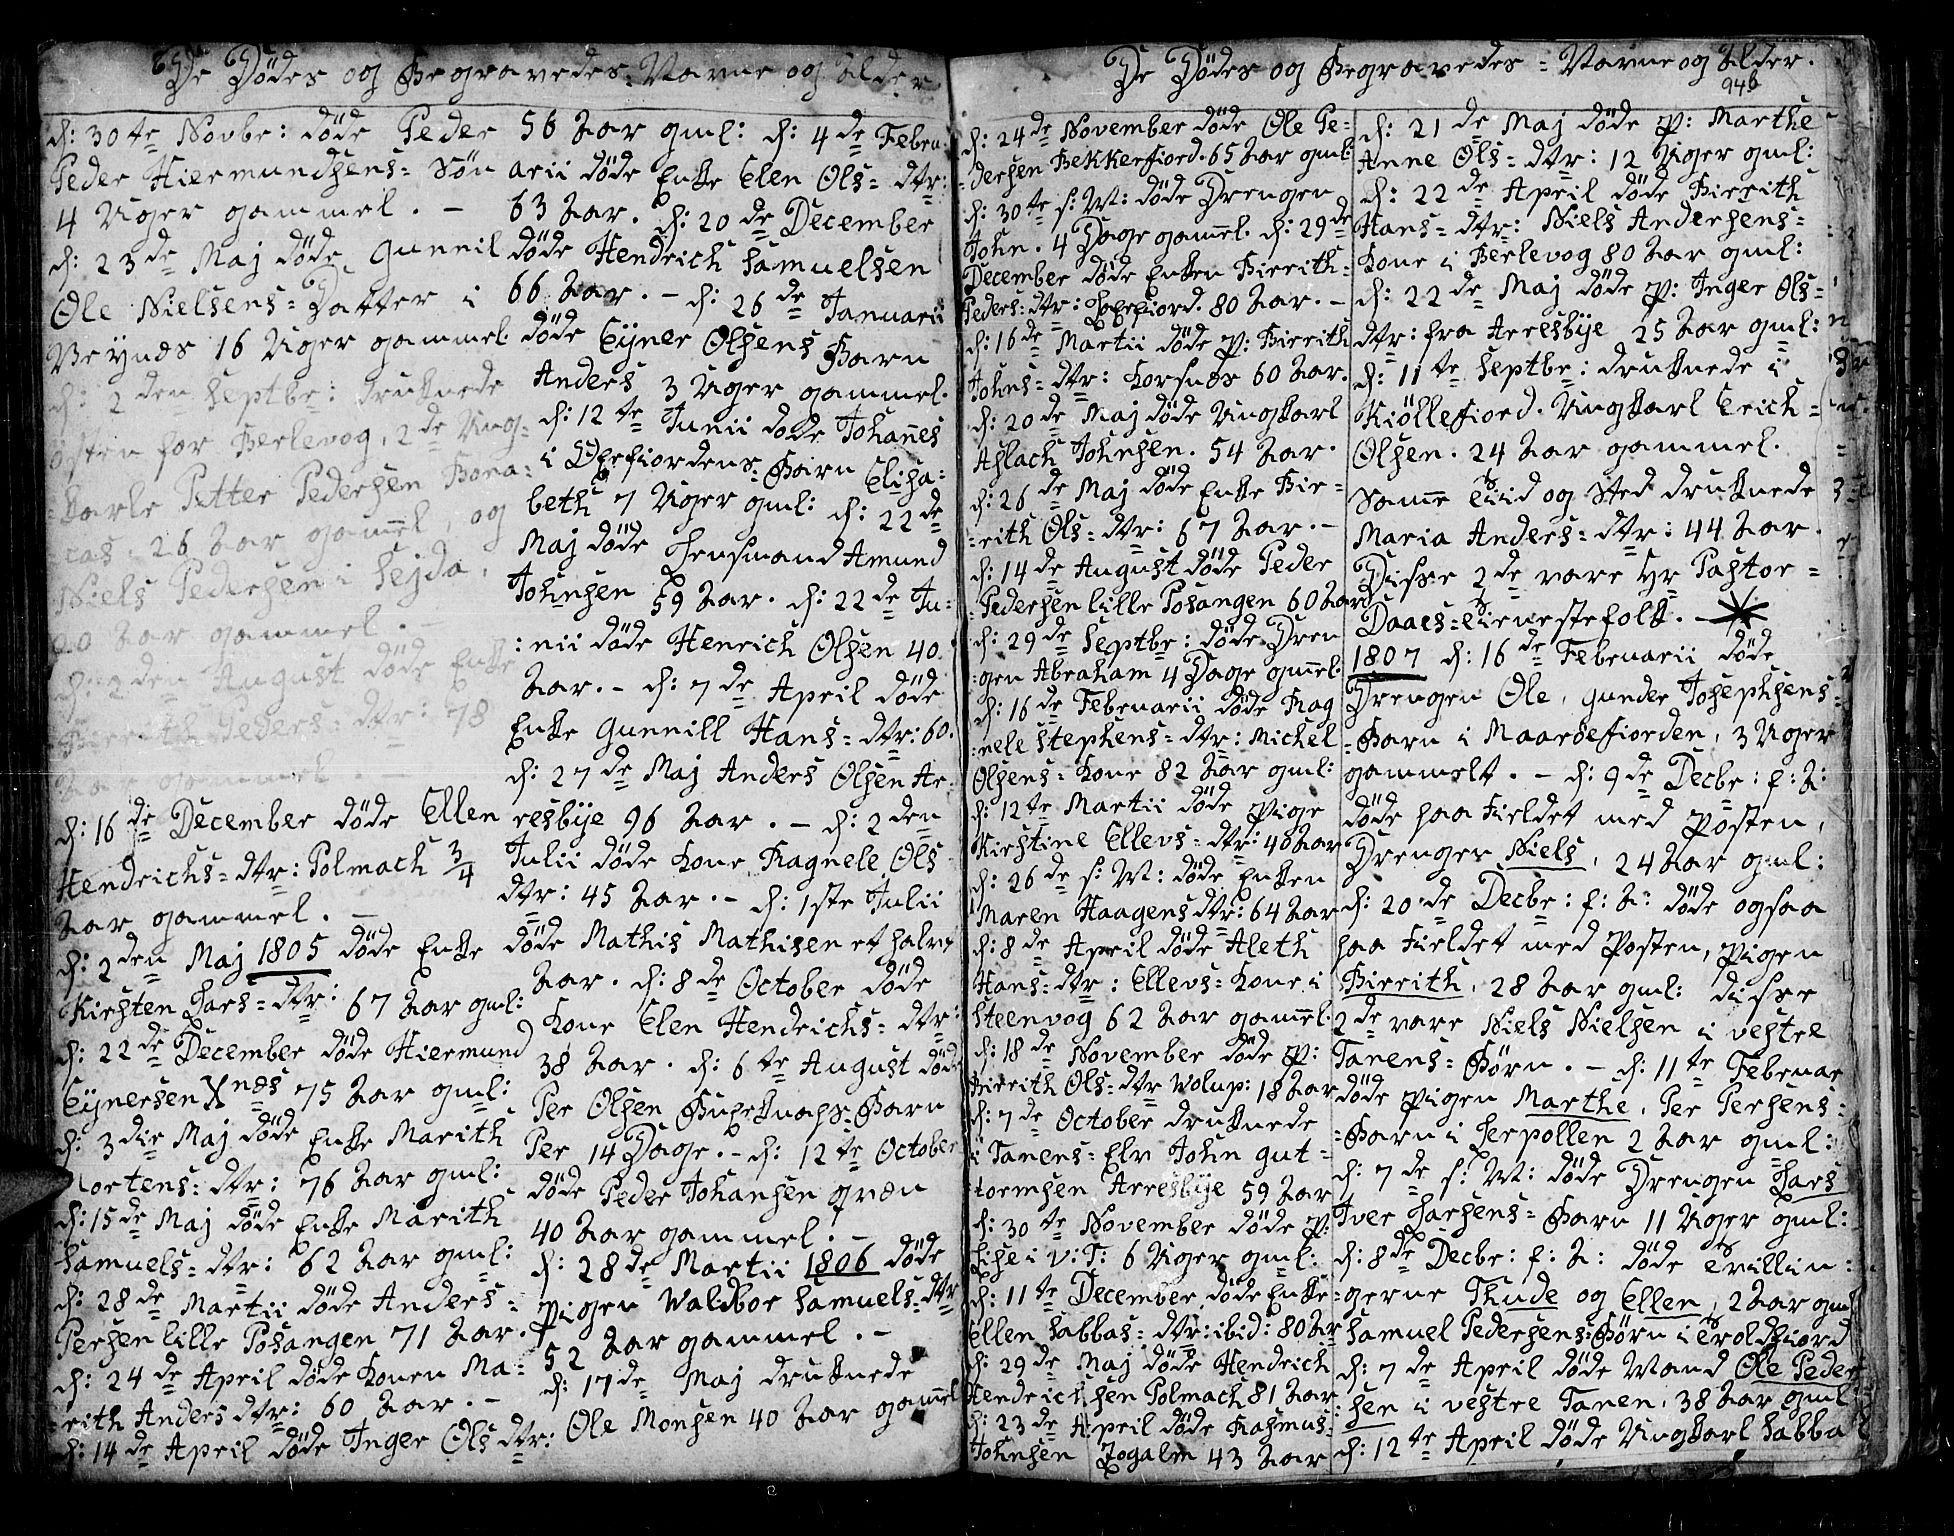 De Dödes og Begravedes Navne og Alder
d: 30te Novbr: döde Peder
Peder Hiermundsens= Sön
4 Uger gammel. –
d: 23de Maj döde Gunnil
Ole Nielsens= Datter i
16 Uger gammel
d: 2den Septbr: druknede
östen for Berlevog, 2de Ung=
=karle Petter Pedersen Bona=
cas 26 Aar gamel, og
Niels Pedersen i Sejda,
Aar gammel. –
d: 2den August döde Enke
Bierith Peders= dtr: 78
Aar gammel. –
d: 16de December döde Ellen
Hendrichs= dtr: Polmach 3/4
Aar gammel. –
d: 2den Maj 1805 döde Enke
Kirsten Lars= dtr: 67 Aar gml:
d: 22de December döde Hiermund
Ejnersen Xnæs 75 Aar gml:
d: 3die Maj döde Enke Marith
Mortens= dtr: 76 Aar gml:
d: 15de Maj döde Enke Marith
Samuels= dtr: 62 Aar gml:
d: 28de Martii döde Anders=
Persen lille Posangen 71 Aar.
d: 24de April döde Konen Ma=
=rith Anders dtr: 60 Aar. –
d: 14de April döde Inger Ols dtr:
56 Aar gml: d: 4de Febru=
arii döde Enke Elen Ols= dtr:
63 Aar. d: 20de December
döde Hendrich Samuelsen
66 Aar. – d: 26de Januarii
döde Ejner Olsens Barn
Anders 3 Uger gammel.
d: 12te Junii döde Johanes
i Oxefiordens= Barn Elisa=
beth 7 Uger gml: d: 22de
Maj döde Lensmand Amund
Johnsen 59 Aar. d: 22de Ju=
:nii döde Henrich Olsen 40
Aar. – d: 7de April döde
Enke Gunnill Hans= dtr: 60.
d: 27de Maj Anders Olsen Ar=
resbye 96 Aar. – d: 2den
Julii döde Kone Ragnele Ols
dtr: 45 Aar. – d: 1ste Julii
döde Mathis Mathisen et halvt
Aar. d: 8de October döde
Kone Elen Hendrichs= dtr:
38 Aar. d: 6te August döde
Per Olsen Buxeknaps= Barn
Per 14 Dage. – d: 12te October
döde Peder Johansen qvæn
40 Aar gammel. –
d: 28de Martii 1806 döde
pigen Waldbor Samuels= dtr
52 Aar gammel. –
d: 17de Maj druknede
Ole Monsen 40 Aar gamel
De Dödes og Begravedes= Navne og Alder.
94b
d: 24de November döde Ole Pe=
=dersen Bekkerfiord. 65 Aar gml:
d: 30te s: M: döde Drengen
John. 4 Dage gamel. d: 29de
December döde Enken Bierith=
Peders= dtr: Laxefiord. 80 Aar. –
d: 16de Martii döde p: Bierith
Johns= dtr: Korsnæs 60 Aar.
d: 20de Maj döde Ungkarl
Aslach Johnsen. 54 Aar.
d: 26de Maj döde Enke Bie=
=rith Ols= dtr: 67 Aar. –
d: 14de August döde Peder
=Pedersen lille Posangen 60 Aar
d: 29de Septbr: döde Dren
gen Abraham 4 Dage gmel:
d: 16de Februarii döde Rag
nele Stephens= dtr: Michel
Olsens= Kone 82 Aar gml:
d: 12te Martii döde pige
Kirstine Ellevs= dtr: 40 Aar
d: 26de s: M: döde Enken
Maren Haagens dtr: 64 Aar
d: 8de April döde Aleth
Hans= dtr: Ellevs= Kone i
Steenvog 62 Aar gamel.
d: 18de November döde p:
Bierith Ols= dtr Wolup: 18 Aar
d: 7de October druknede
i Tanens= Elv John Gut=
tormsen Arresbye 59 Aar
d: 30te November döde p:
Lise i v: T: 6 Uger gml:
d: 11te December döde Enke
Ellen Sabbas= dtr: ibid: 80 Aar
d: 29de Maj döde Hendrich
Hendrichsen Polmach 81 Aar
d: 23de April döde Rasmus
Johnsen 43 Aar
d: 21de Maj döde p: Marthe
Anne Ols= dtr: 12 Uger gml:
d: 22de April döde Bierith
Hans= dtr: Niels Andersens=
Kone i Berlevog 80 Aar gml:
d: 22de Maj döde p: Inger Ols=
dtr: fra Arresbye 25 Aar gml:
d: 11te Septbr: druknede i
Kiöllefiord. Ungkarl Erich=
Olsen. 24 Aar gammel.
Same Tiid og Sted druknede
Maria Anders= dtr: 44 Aar.
Disse 2de vare Hr Pastor=
Daaes= Tienestefolk. –
1807 d: 16de Februarii döde
Drengen Ole, Gunder Josephsens=
=Barn i Maarsefiorden, 3 Uger
gammelt. – d: 9de Decbr: f: A:
döde paa Fieldet med Posten,
Drenger Niels, 24 Aar gml:
d: 20de Decbr: f: A: döde ogsaa
paa Fieldet med Posten, Pigen
Bierith, 28 Aar gml: disse
2de vare Niels Nielsen i vestre
Tanens= Börn. – d: 11te Februar
döde pigen Marthe, Per Persens=
=Barn i Lerpollen 2 Aar gml:
d: 7de s: M: döde Drengen Lars
Iver Larsens= Barn 11 Uger gml:
d: 8de Decbr: f: A: döde Tvillin=
=gerne Thude og Ellen, 2 Aar gml
Samuel Pedersens= Börn i Troldfiord
d: 7de April döde Mand Ole Peder
sen i vestre Tanen, 38 Aar gml:
d: 12te April döde Ungkarl Sabba